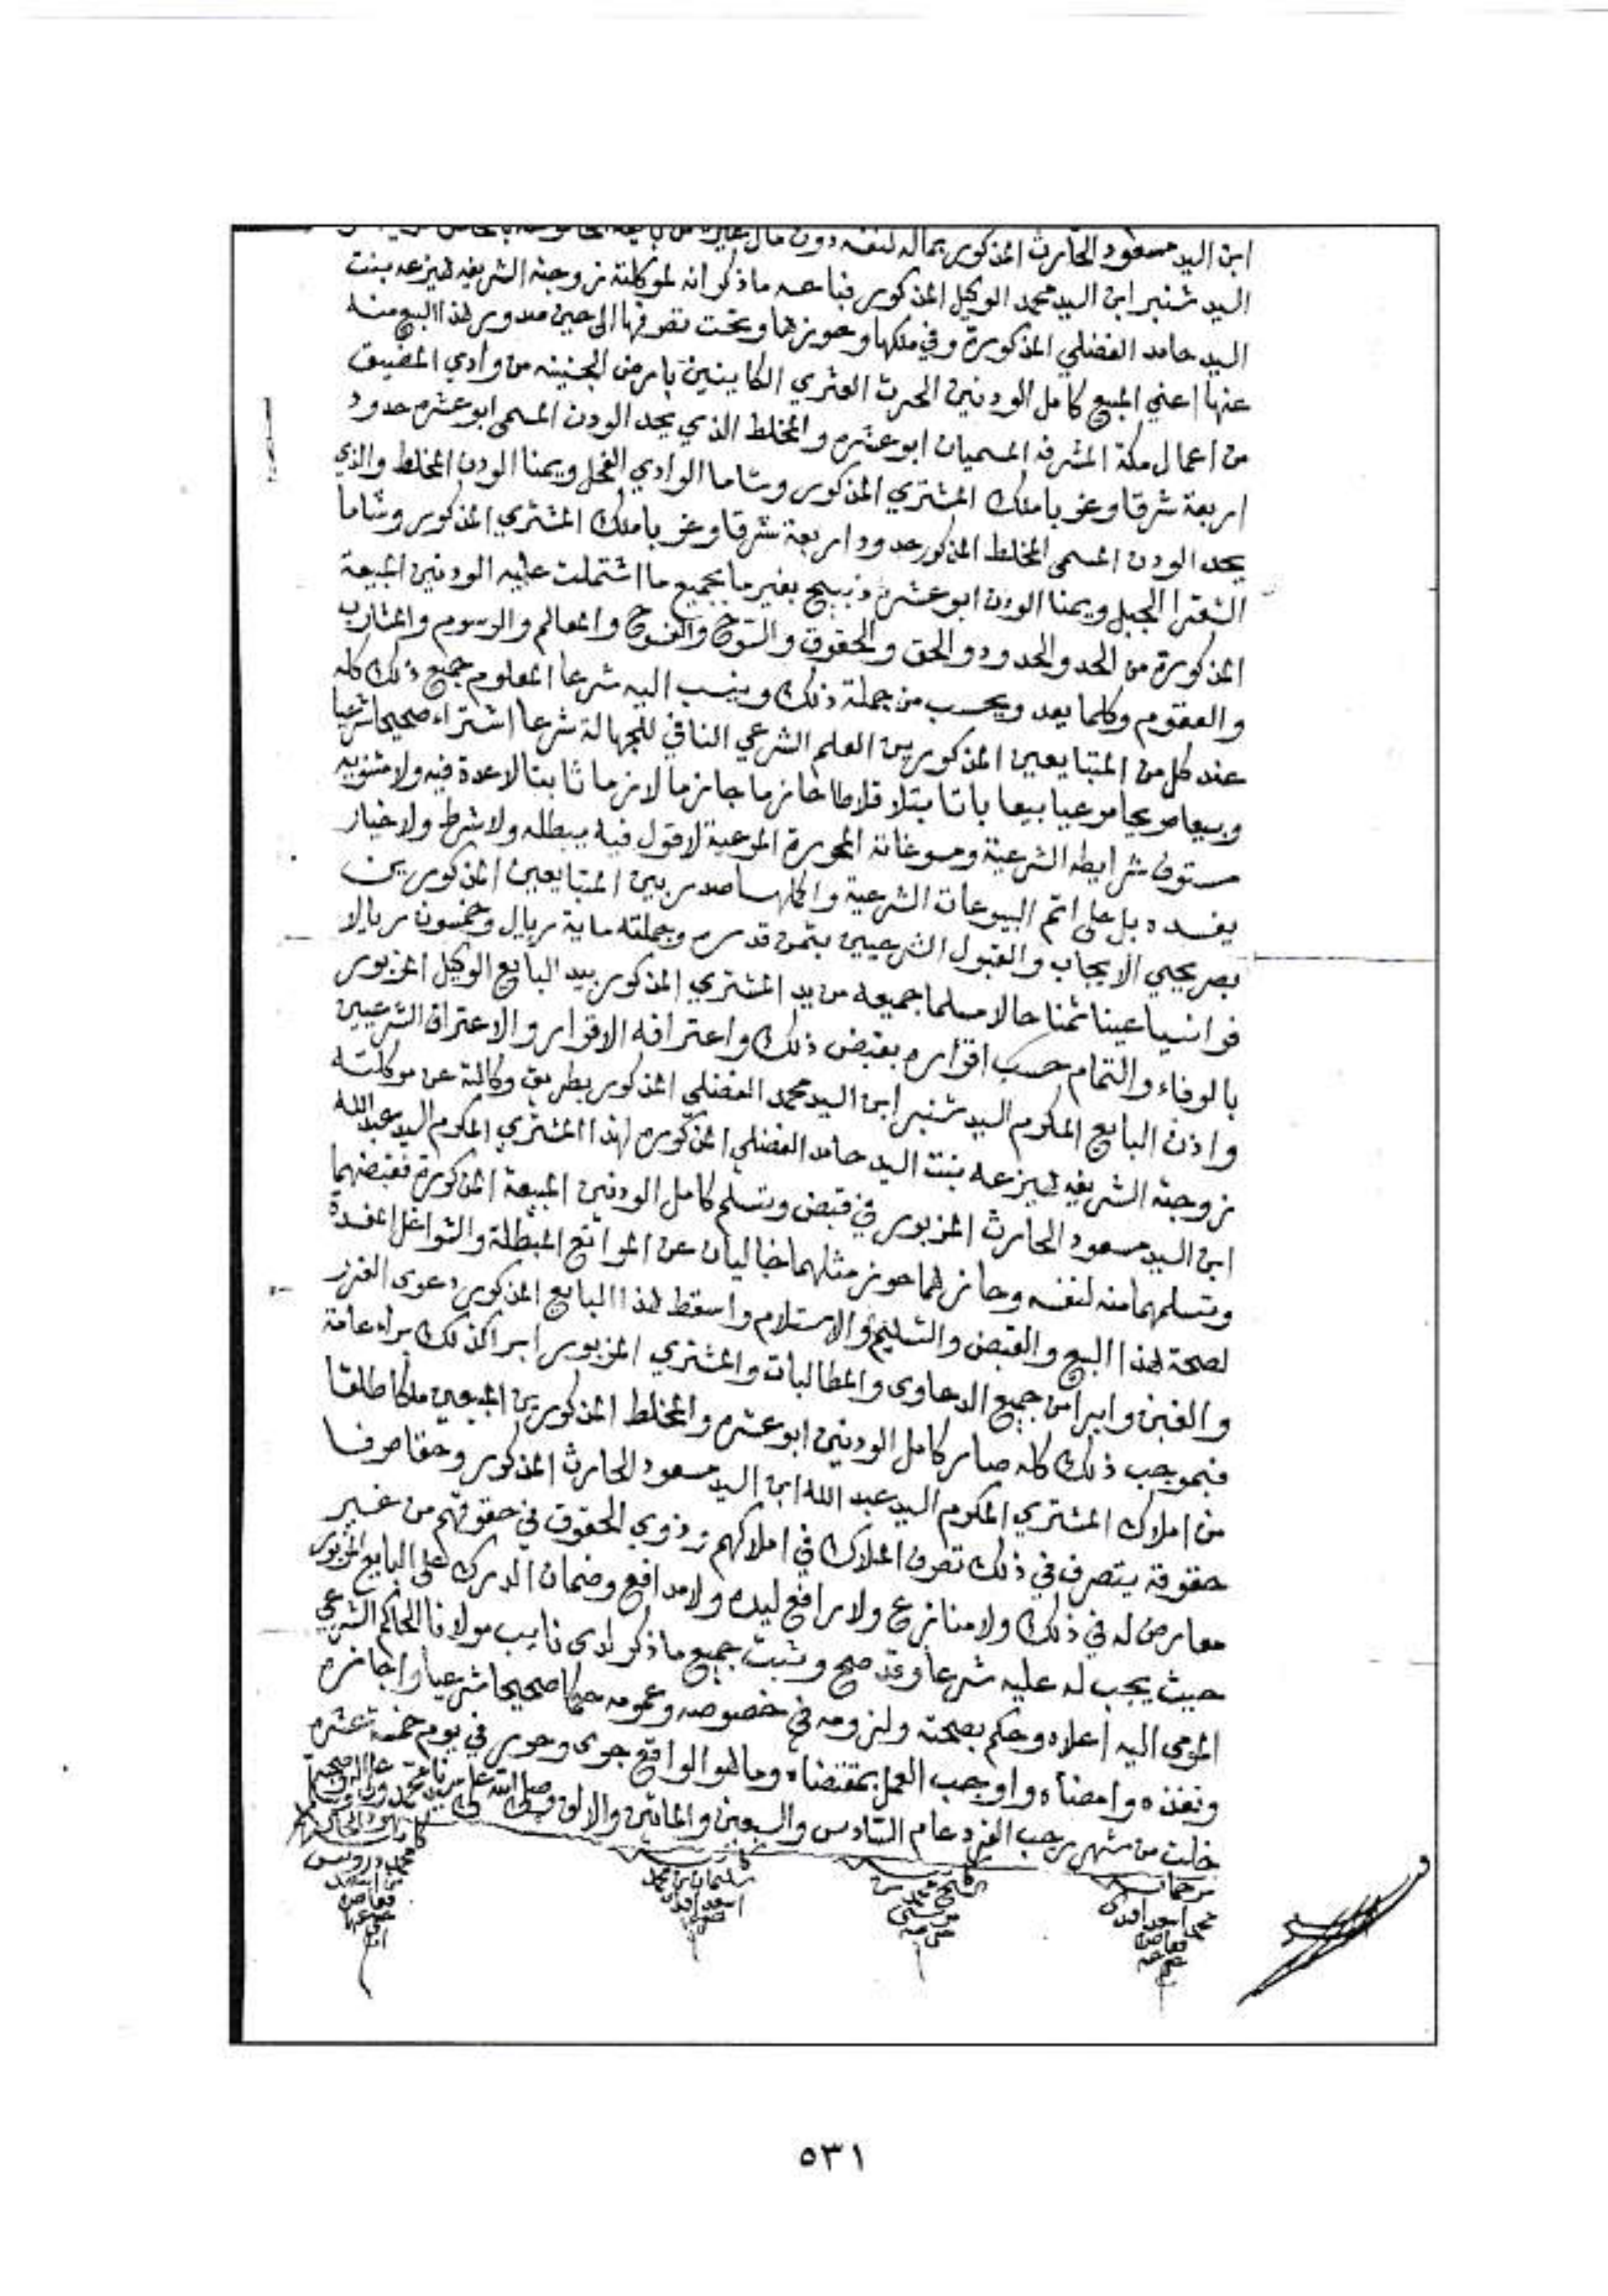 ابن السيد مسعود الحارث المذكور بماله لنفسه دون مال غيره من
السيد شنبر ابن السيد محمد الوكيل المذكور فباعه ما ذكر انه لموكلته زوجته الشريفه هيزعه بنت
السيد حامد الفضلي المذكورة وفي ملكها وحوزها وتحت تصرفها الى حين صدور هذا البيع منه
عنها اعني المبيع كامل الودنين الحرث العثري الكاينين بارض الجنينه من وادي المضيق
من اعمال مكة المشرفه المسميان ابو عشره والمخلط الذي يحد الودن المسمى ابو عشره حدود
اربعة شرقا وغربا ملك المشتري المذكور وشاما الوادي الفحل ويمنا الودن المخلط والذي
يحد الودن المسمى المخلط المذكور حدود اربعة شرقا وغربا ملك المشتري المذكور وشاما
الجبل ويمنا الودن ابو عشره بجميع ما اشتملت عليه الودنين المبيعة
المذكورة من الحد والحدود والحق والحقوق والسوح والفسوح والمعالم والرسوم والمثارب
والعقوم وكلما يعد ويحسب من جملة ذلك وينسب اليه شرعا المعلوم جميع ذلك كله
عند كل من المتبايعين المذكورين العلم الشرعي النافي للجهالة شرعا اشتراء صحيحا شرعيا
وبيعا صريحا مرعيا بيعا باتا بتلا قاطعا جازما لازما ثابتا لا عدة فيه ولا مثنويه
مستوف شرايطه الشرعية ومسوغاته المحررة المرعية لا قول فيه يبطله ولا شرط ولا خيار
يفسده بل على اتم البيوعات الشرعية واكملها صدر بين المتبايعين المذكورين
بصريحي الايجاب والقبول الشرعيين بثمن قدره وجملته ماية ريال وخمسون ريالا
فرانسيا عينا ثمنا حالا مسلما جميعه من يد المشتري المذكور بيد البايع الوكيل المزبور
بالوفاء والتمام حسب اقراره بقبض ذلك واعترافه الاقرار والاعتراف الشرعيين
واذن البايع المكرم السيد شنبر ابن السيد محمد الفضلي المذكور بطريق وكالته عن موكلته
زوجته الشريفه هيزعه بنت السيد حامد الفضلي المذكوره لهذا المشتري المكرم السيد عبد الله
ابن السيد مسعود الحارث المزبور في قبض وتسلم كامل الودنين المبيعة المذكورة فقبضهما
وتسلمهما منه لنفسه وحازهما حوز مثلهما خاليان عن الموانع المبطلة والشواغل المفسدة
لصحة هذا البيع والقبض والتسليم والاستلام واسقط هذا البايع المذكور دعوى الغرر
والغبن وابرا من جميع الدعاوى والمطالبات والمشتري المزبور ابرا كذلك براه عامة
فبموجب ذلك كله صار كامل الودنين ابو عشره والمخلط المذكورين المبيعين ملكا طلقا
من املاك المشتري المكرم السيد عبد الله ابن السيد مسعود الحارث المذكور وحقا صرفا
حقوقه يتصرف في ذلك تصرف الملاك في املاكهم وذوي الحقوق في حقوقهم من غير
معارض له في ذلك ولا منازع ولا رافع ليده ولا مدافع وضمان الدرك على البايع المزبور
حيث يجب له عليه شرعا وقد صح وثبت جميع ما ذكر لدى نايب مولانا الحاكم الشرعي
المومى اليه اعلاه وحكم بصحته ولزومه في خصوصه وعمومه حكما صحيحا شرعيا واجازه
ونفذه وامضاه واوجب العمل بمقتضاه وما هو الواقع جرى وحرر في يوم خمسة عشره
خلت من شهر رجب الفرد عام السادس والسبعين والمائتين والالف وصلى الله على سيدنا محمد وعلى اله وصحبه وسلم
٥٣١